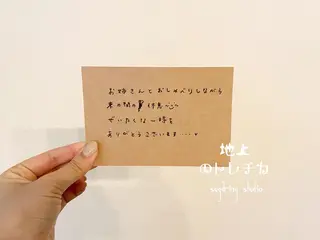 お姉さんとおしゃべりしながら
束の間の休息
ぜいたくな一時を
ありがとうございます…
地上
のトレチカ